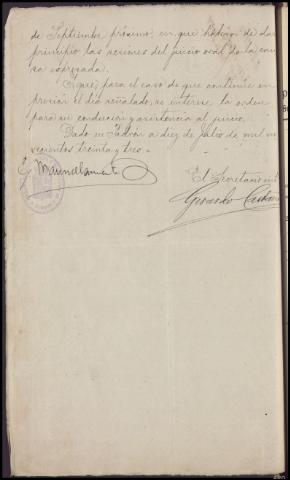 de Septiembre próximo, en que habrán de dar
principio las sesiones del juicio oral de la cau-
sa expresada.
Y que para el caso de que continúe en
prisión el día señalado, se interese la orden
para su conducción y asistencia al juicio.
Dado en Padrón a diez de Julio de mil no-
vecientos treinta y tres.-
El Secretario
Gerardo